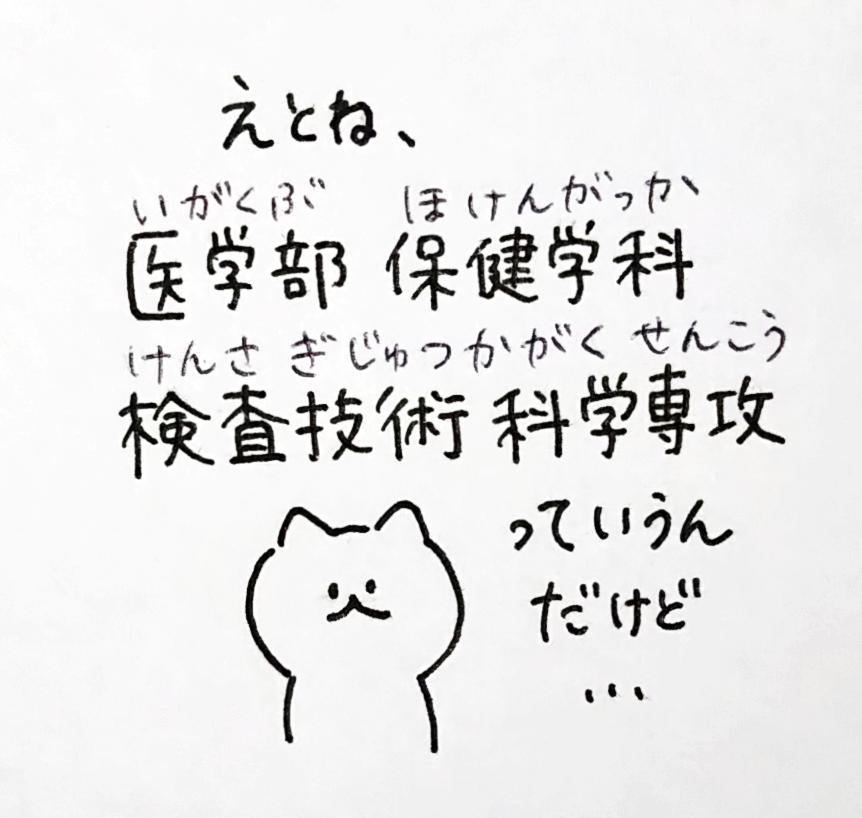 えとね、
いがくぶ ほけんがっか
医学部 保健学科
けんさ ぎじゅつかがく せんこう
検査技術科学専攻
っていうん
だけど
…